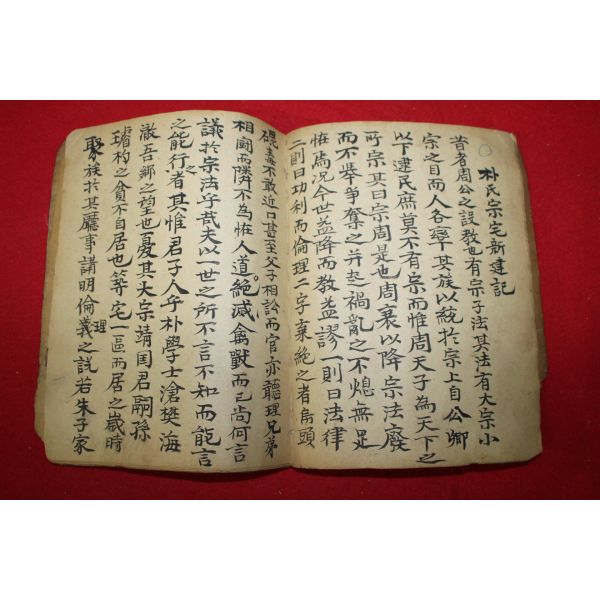 朴氏宗宅新建記
昔者周公之設敎也有宗子法其法有大宗小
宗之目而人各率其族以統於宗上自公卿
以下逮民庶莫不有宗而惟周天子為天下之
所宗其曰宗周是也周衰以降宗法廢
而不舉爭奪之幷起禍亂之不熄無足
怪焉況今世益降而敎益謬一則曰法律
二則曰功利而倫理二字棄絶之者烏頭
不敢近口甚至父子相訟而官亦聽理兄弟
相鬪而隣不為怪人道絶滅禽獸而已尚何言
議於宗法乎哉夫以一世之所不言不知而能言
之能行之者其惟君子人乎朴學士滄樊海
澈吾鄕之望也憂其大宗靖国君嗣孫
瑃杓之貧不自居也築宅一區而居之歲時
聚族於其廳事講明倫理義之說若朱子家